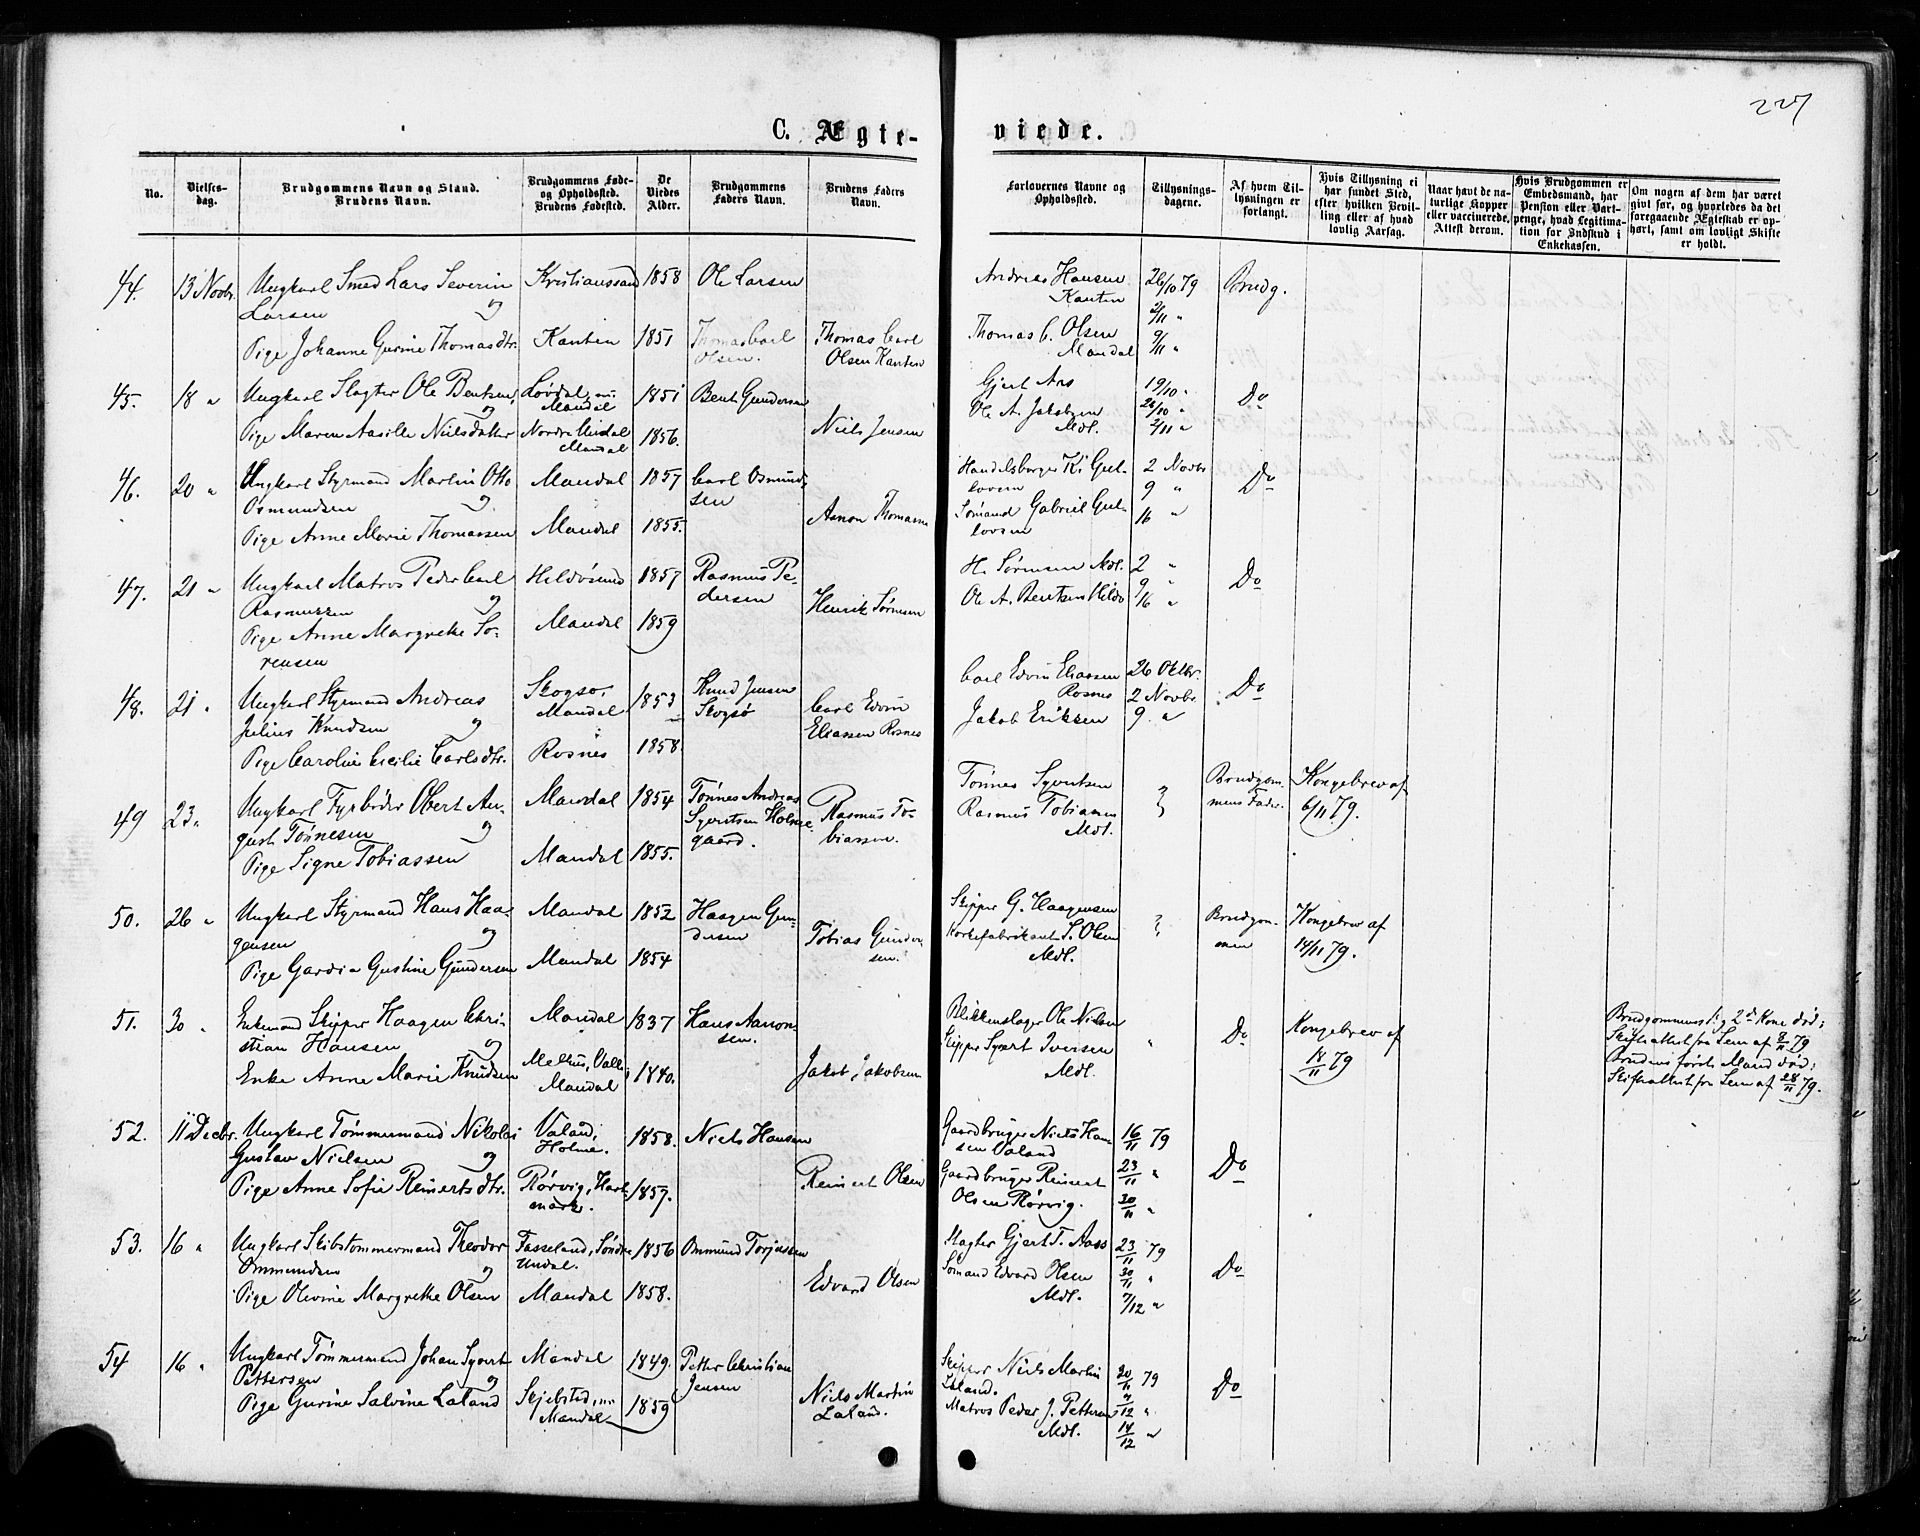 227
C. Ægte-
viede.
No.
Vielses-
dag.
Brudgommens Navn og Stand.
Brudens Navn.
Brudgommens Føde-
og Opholdssted.
Brudens Fødested.
De
Viedes
Alder.
Brudgommens
Faders Navn.
Brudens Faders
Navn.
Forlovernes Navne og
Opholdssted.
Tillysnings-
dagene.
Af hvem Til-
lysningen er
forlangt.
Hvis Tillysning ei
har fundet Sted,
efter hvilken Bevil-
ling eller af hvad
lovlig Aarsag.
Naar havt de na-
turlige Kopper
eller vaccinerede.
Attest derom.
Hvis Brudgommen er
Embedsmand, har
Pension eller Vart-
penge, hvad Legitima-
tion for Indskud i
Enkekassen.
Om nogen af dem har været
givt før, og hvorledes da det
foregaaende Ægteskab er op-
hørt, samt om lovligt Skifte
er holdt.
44. 13 Novbr. Ungkarl Smed Lars Severin Kristianssand 1858 Ole Larsen Andreas Hansen 26/10 79 Brudg.
Larsen og Kanten 2/11 "
Pige Johanne Gurine Thomasdtr. Kanten 1851 Thomas Carl Thomas Carl Thomas C. Olsen 9/11 "
Olsen. Olsen Kanten Mandal
45. 18 " Ungkarl Slagter Ole Bentsen Løvdal, nu 1851 Bent Gundersen Gjert Aas 19/10 " Do
og Mandal Ole A. Jakobsen 26/10 "
Pige Maren Aasille Nielsdatter Nordre Undal 1856. Niels Jensen Mdl. 2/11 "
Mandal
46. 20 " Ungkarl Styrmand Martin Otto Mandal 1857 Carl Osmund- Handelsborger Ki Gul- 2 Novbr Do
Osmundsen og sen lovsen 9 "
Pige Anne Marie Thomassen Mandal 1855. Aanon Thomassen Sømand Gabriel Gul- 16 "
lovsen
47. 21 " Ungkarl Matros Peder Carl Hildøsund 1857 Rasmus Pe- H. Sørensen Mdl. 2 " Do
Rasmussen og dersen 9 "
Pige Anne Margrethe Sø- Mandal 1859 Henrik Sørensen Ole A. Bentsen Hildø 16 "
rensen
48. 21 " Ungkarl Styrmand Andreas Skogsø, 1853 Knud Jensen Carl Edvin Eliassen 26 Oktbr. Do
Julius Knudsen og Mandal Skogsø Carl Edvin Rosnes 2 Novbr.
Pige Caroline Cecilie Carlsdtr. Rosnes 1858 Eliassen Rosnes Jakob Eriksen 9. "
49 23 " Ungkarl Fyrbøder Obert Au- Mandal 1854 Tønnes Andreas Rasmus To- Tønnes Syvertsen " Brudgom- Kongebrev af
gust Tønnesen og Syvertsen Holme- biassen. Rasmus Tobiassen mens Fader. 6/11 79.
Pige Signe Tobiassen Mandal 1855. gaard. Mdl.
50. 26 " Ungkarl Styrmand Hans Haa- Mandal 1852 Haagen Gun- Skipper G. Haagensen " Brudgom- Kongebrev af
gensen og dersen Tobias Gunder- Korkefabrikant S. Olsen men 14/11 79.
Pige Gardia Gustine Gundersen Mandal 1854 sen. Mdl.
51. 30 " Enkemand Skipper Haagen Chri- Mandal 1837 Hans Aanon- Blikkenslager Ole Nielsen " Do Kongebrev af Brudgommens 1. og 2den Kone død;
stian Hansen og sen. Skipper Syvert Iversen 18/11 79 Skifteattest fra Lem af 8/11 79
Enke Anne Marie Knudsen Melhus, Valle, 1840. Jakob Jakobsen Mdl. Brudens første Mand død;
Mandal Skifteattest fra Lem af 28/11 79.
52. 11 Decbr. Ungkarl Tømmermand Nikolai Valand, 1858. Niels Hansen Gaardbruger Niels Han- 16/11 79 Do
Gustav Nielsen og Holme. sen Valand 23/11 "
Pige Anne Sofie Reinertsdtr. Rørvig, Hart- 1857. Reinert Olsen Gaardbruger Reinert 30/11 "
mark. Olsen Rørvig.
53. 16 " Ungkarl Skibstømmermand Theodor Fasseland, Søndre 1856 Ommund Torjussen Slagter Gjert T. Aass 23/11 79 Do
Ommundsen og Undal. Sømand Edvard Olsen 30/11 "
Pige Olevine Margrethe Olsen Mandal 1858. Edvard Olsen Mdl. 7/12 "
54 16 " Ungkarl Tømmermand Johan Syvert Mandal 1849. Petter Christian Skipper Niels Martin 30/11 79 Do
Pettersen og Jensen Laland. 7/12 "
Pige Gurine Salvine Laland Skjebstad, nu 1859 Niels Martin Matros Peder J. Pettersen 14/12 "
Mandal Laland. Mdl.